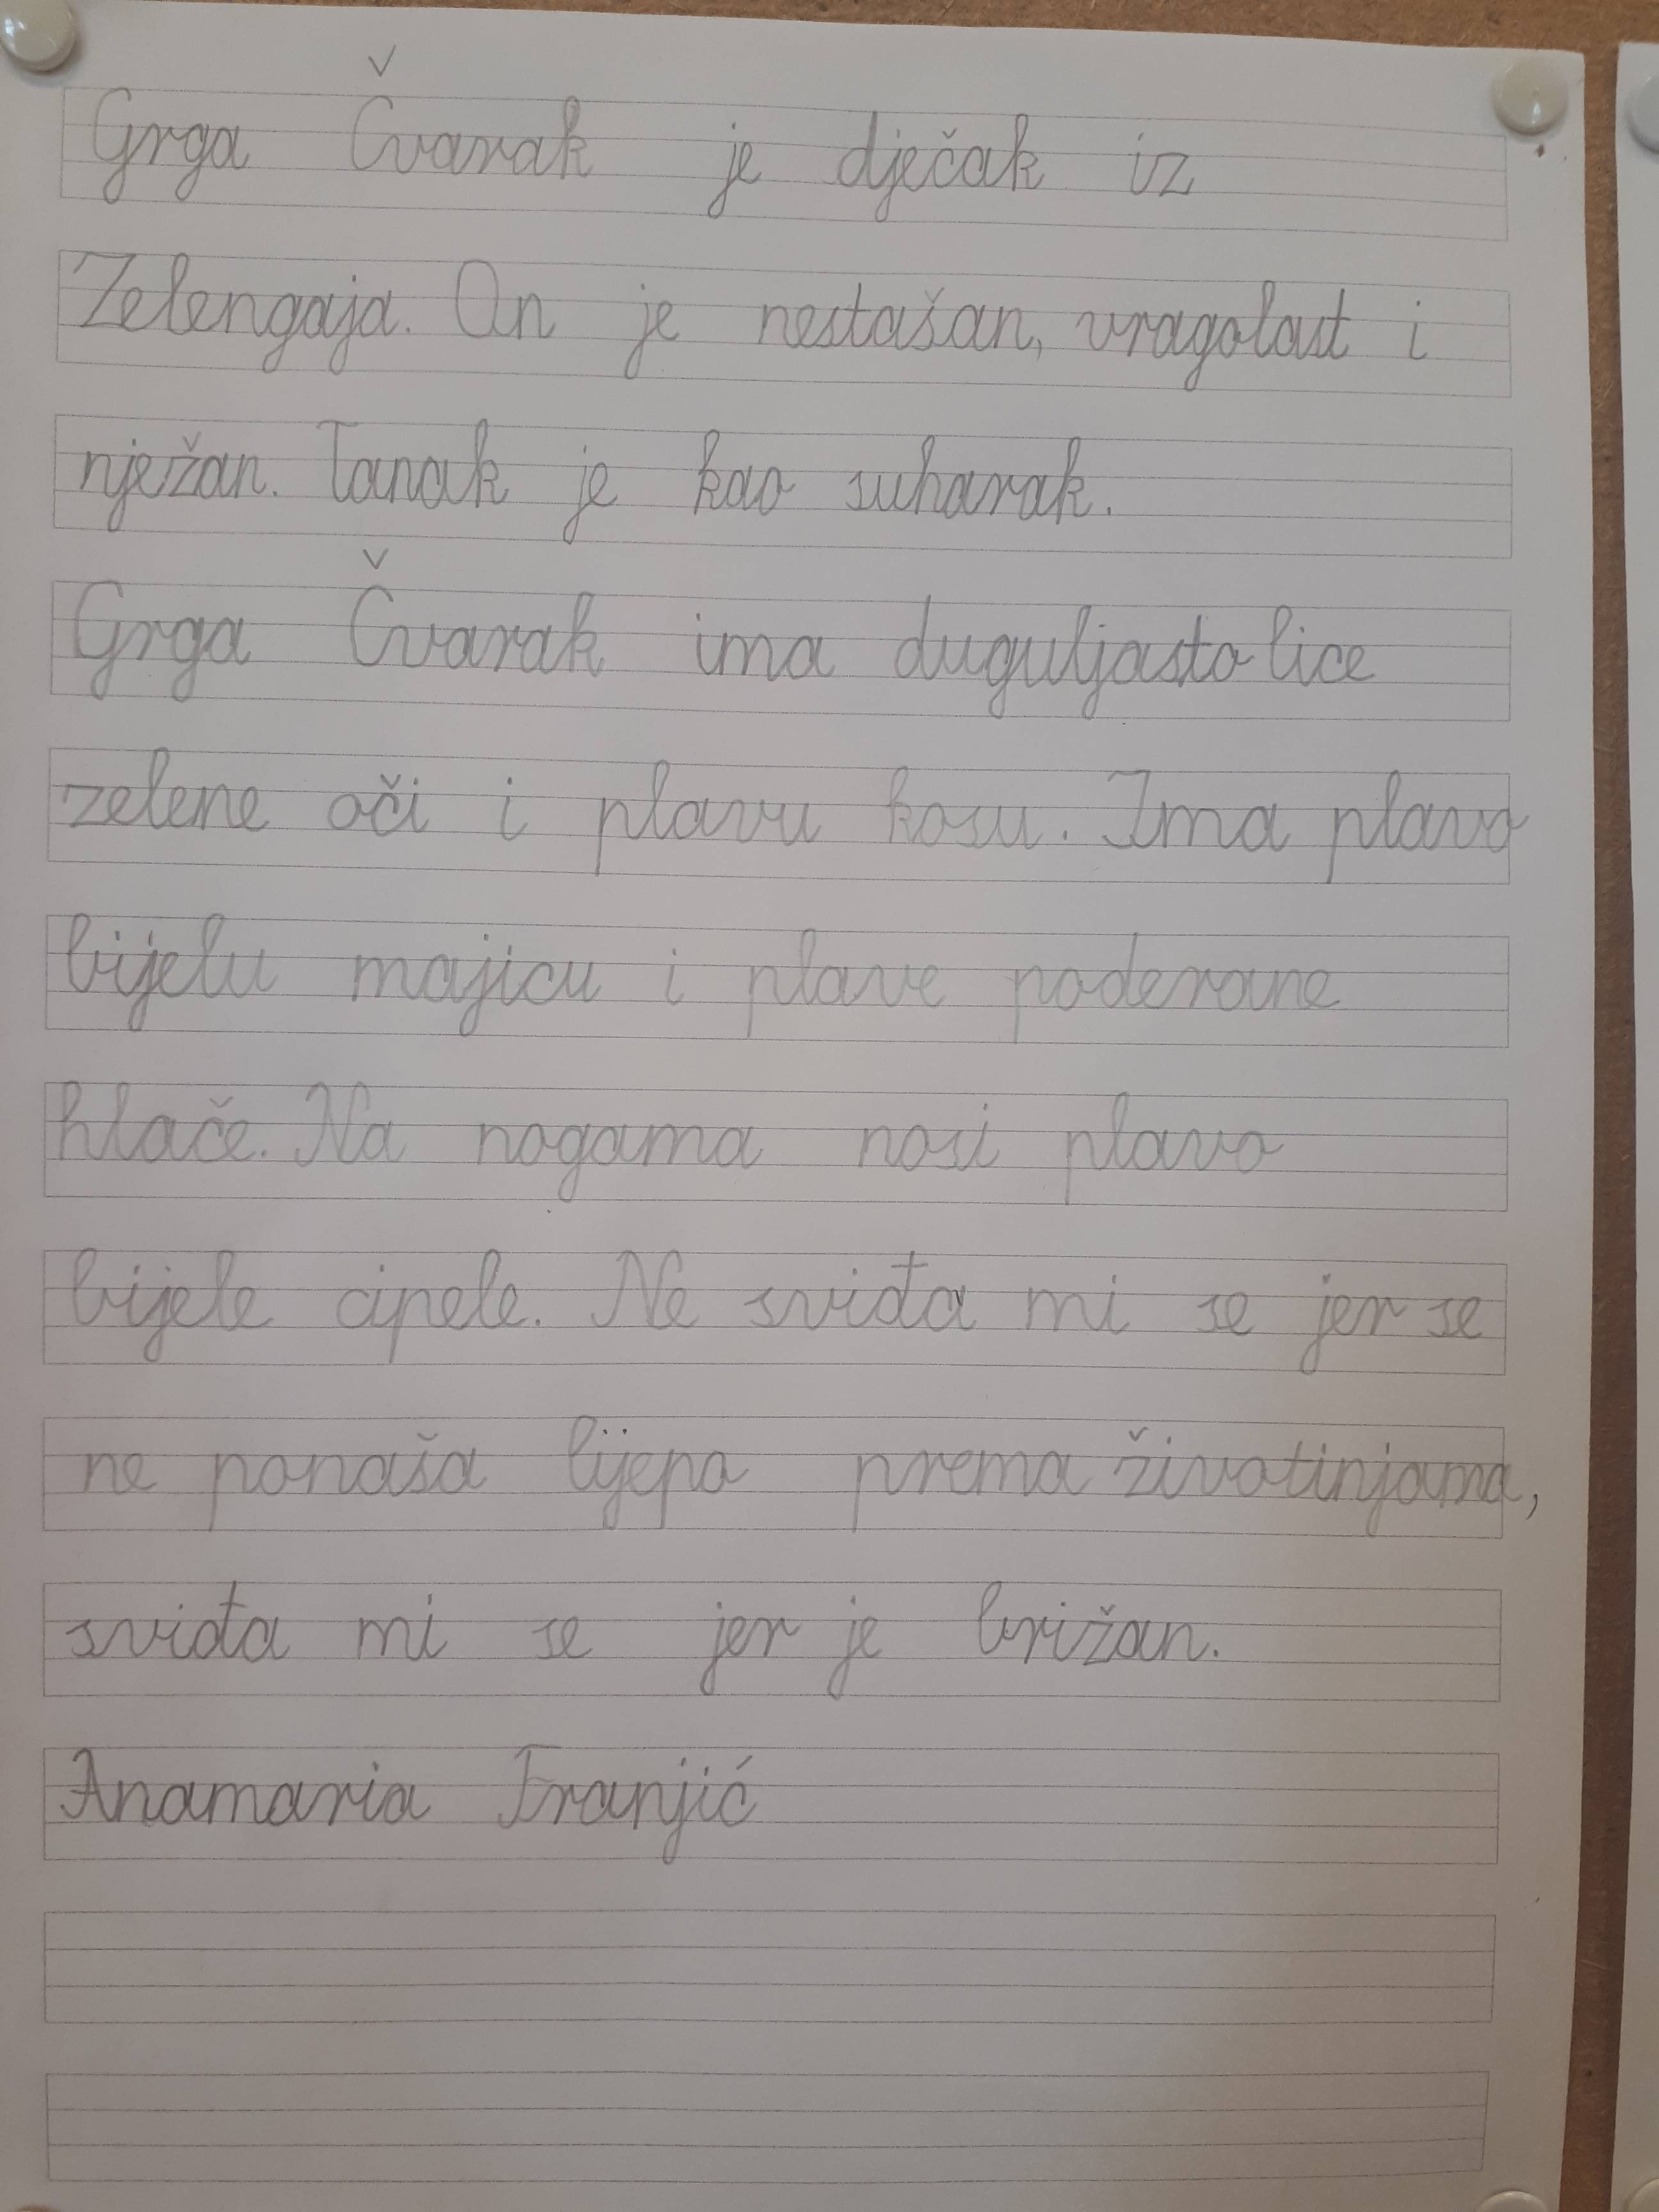 Grga Čvarak je dječak iz
Zelengaja. On je nestašan, vragolast i
nježan. Tanak je kao suharak.
Grga Čvarak ima duguljasto lice
zelene oči i plavu kosu. Ima plavo
bijelu majicu i plave poderane
hlače. Na nogama nosi plavo
bijele cipele. Ne sviđa mi se jer se
ne ponaša lijepo prema životinjama,
sviđa mi se jer je brižan.
Anamaria Franjić